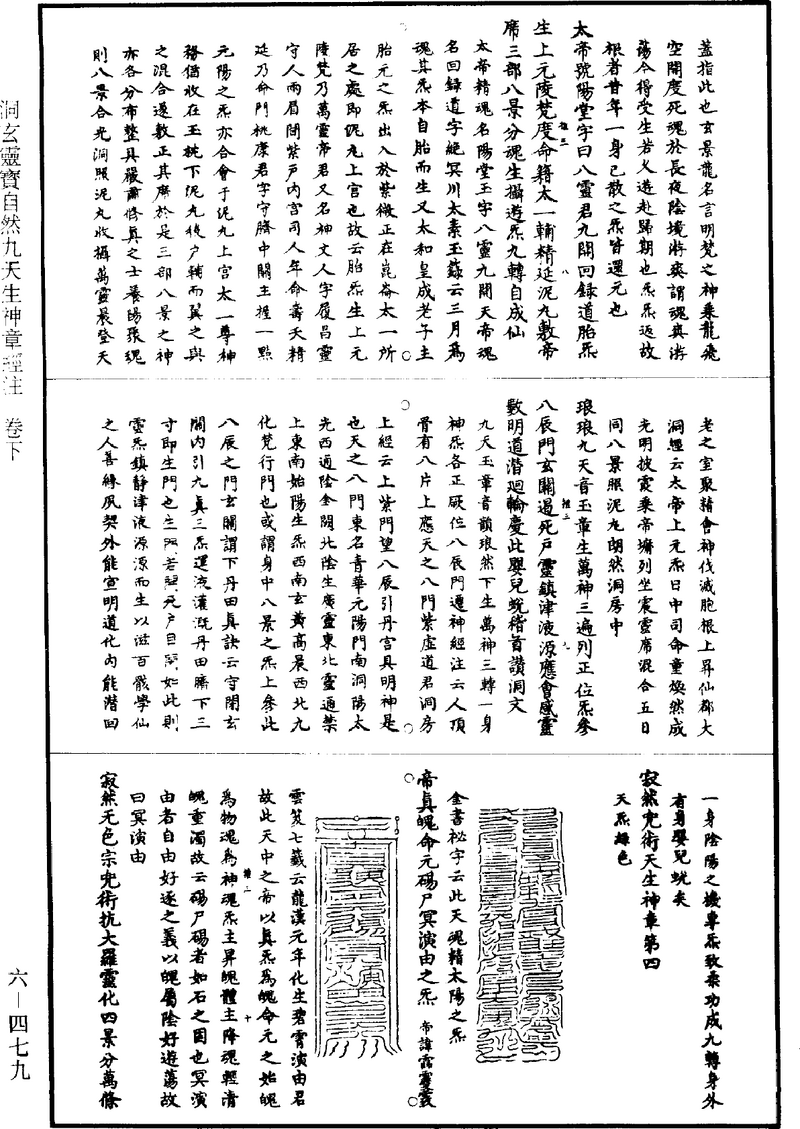 蓋指此也玄景龍名言明梵之神乘龍飛
空開度死魂於長夜陰境游爽謂魂真游
蕩今得受生若乂遊赴歸期也炁炁返故
根者廿年一身已散之炁皆還元也
太帝號陽堂字曰八靈君九關回録道胎炁
生上元陵梵度命籍太一輔精延泥九敷帝
席三部八景分魂生攝遊炁九轉自成仙
太帝精魂名陽堂玉字八靈九關天帝魂
名回録道字絶冥川太素玉籙云三月爲
魂其炁本自胎而生又太和皇成老子主
胎元之炁出入於紫微正在崑崙太一所
居之處即泥丸上宫也故云胎炁生上元
陵梵乃萬靈帝君又名神文人字履昌靈
守人兩眉間紫戸内宫司人年命壽夭精
延乃命門桃康君字守臍中關主握一點
元陽之炁亦合會于泥九上宫太一尊神
務猶收在玉枕下泥九後户輔而翼之與
之混合邊數正其席於是三部八景之神
亦各分布整具嚴肅修真之士養陽張魂
則八景合光洞照泥丸收攝萬靈晨登天
老之室聚精會神伐滅胞根上昇仙都大
洞經云太帝上元炁日中司命童煥然成
光明披霞乘帝墉列坐震靈席混合五日
同八景照泥九朗然洞房中
琅琅九天音玉章生萬神三遍列正位炁參
八辰門玄關遏死戸靈鎮津液源應會感靈
數明道潜廻輪慶此嬰兒蛻稽首讃洞文
九天玉章音韻琅然下生萬神三轉一身
神炁各正厥位八辰門遷神經注云人頂
骨有八片上應天之八門紫虚道君洞房
上經云上紫門望八辰引丹宫真明神是
也天之八門東名青華元陽門南洞陽太
光西通陰金闕北陰生廣靈東北靈通禁
上東南始陽生炁西南玄黄高晨西北九
化梵行門也或謂身中八景之炁上參此
八辰之門玄關謂下丹田真訣云守閉玄
關内引九真三炁運流灌溉丹田臍下三
寸即生門也生門若開死户自閉如此則
靈炁鎮静津液源源而生以滋百骸學仙
之人善緣夙契外能宣明道化内能潜回
一身陰陽之機專炁致柔功成九轉身外
有身嬰兒蛻矣
寂然兜術天生神章第四
天炁緑色
金書祕字云此天魂精太陽之炁
帝真魄命元碭尸冥演由之炁
雲笈七籤云龍漢元年化生碧霄演由君
故此天中之帝以真炁爲魄命元之始魄
爲物魂爲神魂炁主昇魄體主降魂輕清
魄重濁故云碭尸碭者如石之固也冥演
由者自由好逐之義以魄屬陰好遊蕩故
曰冥演由
寂然无色宗兜術抗大羅靈化四景分萬條
洞玄靈寶自然九天生神章經注　卷下
六—四七九